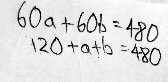 60a+60b=480
120+a+b=480